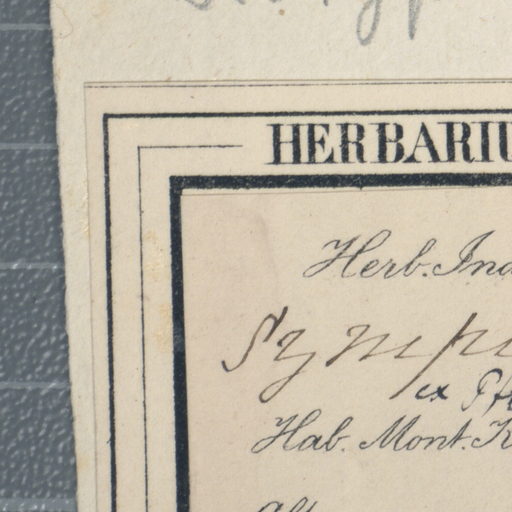 HERBARIU
Herb. Ind
Symp
ex
Hab. Mont. K
Alt